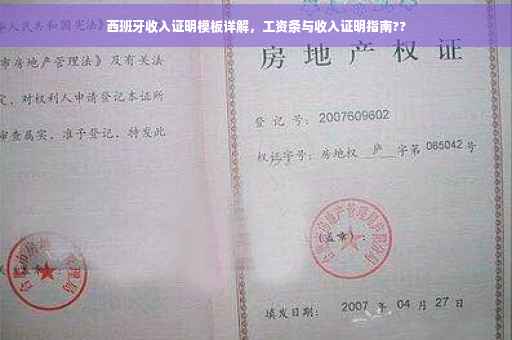 西班牙收入证明模板详解，工资条与收入证明指南??
人民共和国宪法》
市房地产管理法》及有关法
定，对权利人申请登记本证所
审查属实，准予登记，特发此
房地产权证
登记号：2007609602
权证字号：房地权 庐 字第 085042 号
(盖章)：
填发日期：2007 年 04 月 27 日